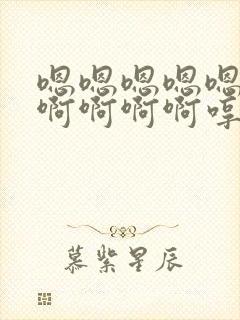 嗯嗯嗯嗯嗯
啊啊啊啊啍
慕紫星辰